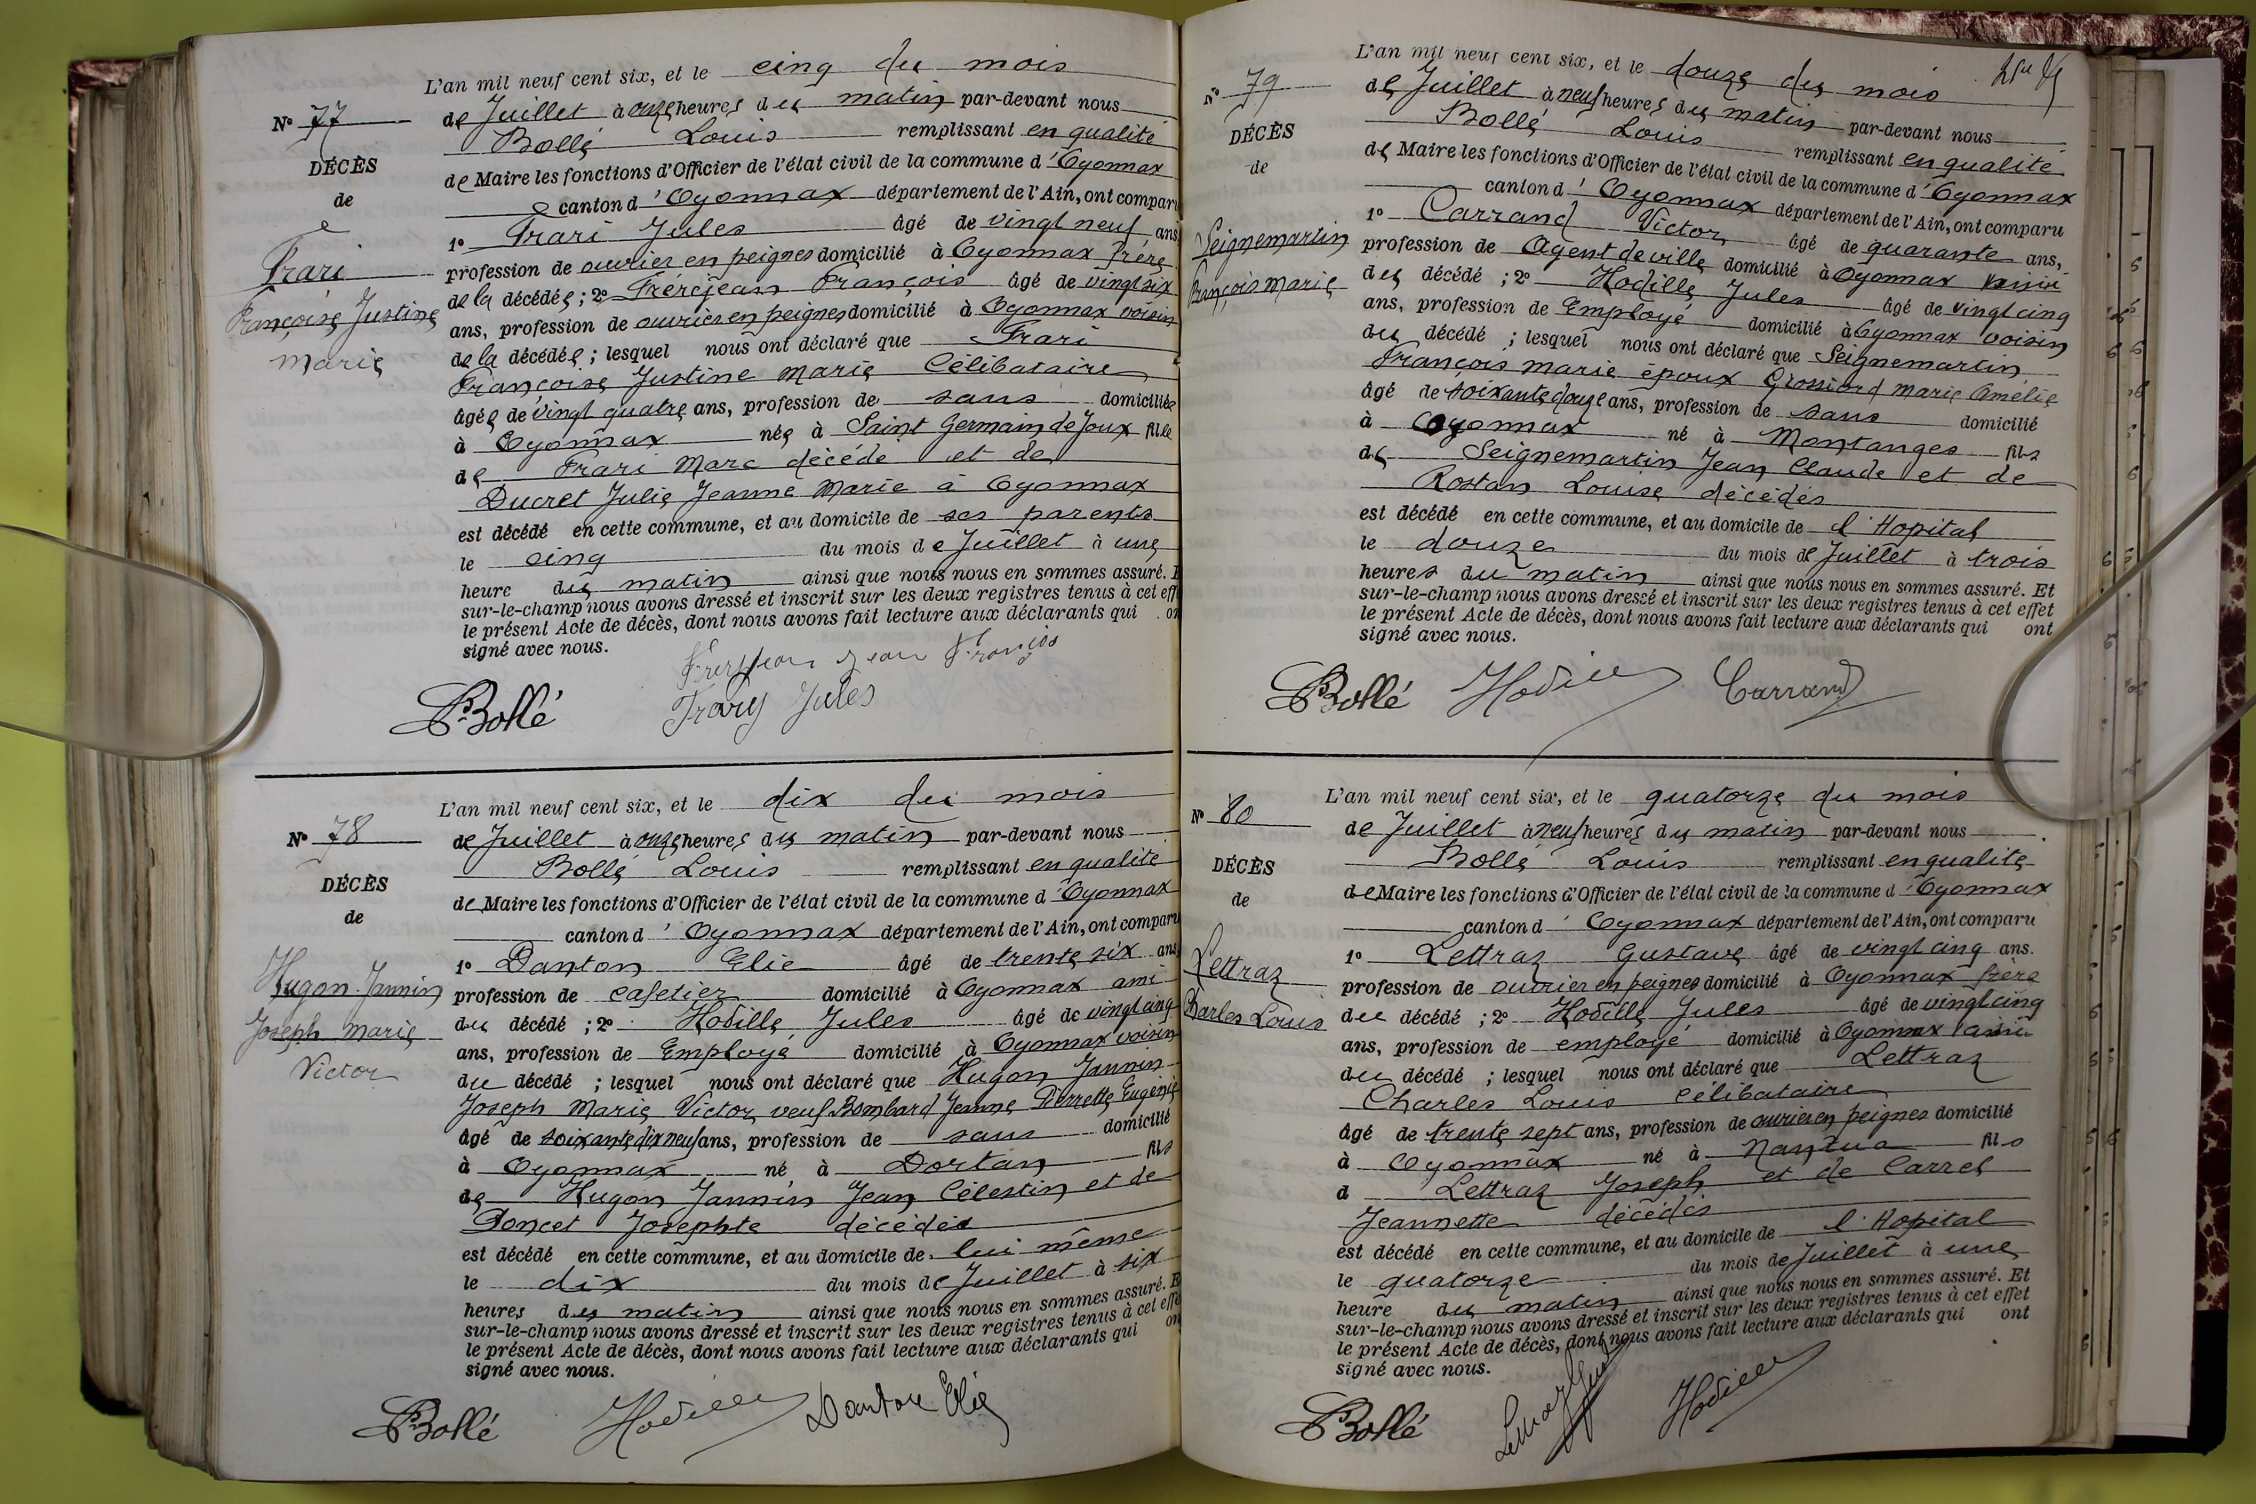 L'an mil neuf cent six, et le cinq du mois
N° 77
de Juillet à onze heures du matin par-devant nous
Bollé Louis remplissant en qualité
DÉCÈS
de Maire les fonctions d'Officier de l'état civil de la commune d'Oyonnax
de
canton d'Oyonnax département de l'Ain, ont comparu
1° Frari Jules âgé de vingt neuf ans
Frari
profession de ouvrier en peignes domicilié à Oyonnax frère
de la décédée ; 2° Frérejean François âgé de vingt six
Françoise Justine
ans, profession de ouvrier en peignes domicilié à Oyonnax voisin
Marie
de la décédée ; lesquel nous ont déclaré que Frari
Françoise Justine Marie Célibataire
âgée de vingt quatre ans, profession de sans domiciliée
à Oyonnax née à Saint Germain de Joux fille
de Frari Marc décédé et de
Ducret Julie Jeanne Marie à Oyonnax
est décédé en cette commune, et au domicile de ses parents
le cinq du mois de Juillet à une
heure du matin ainsi que nous nous en sommes assuré. E
sur-le-champ nous avons dressé et inscrit sur les deux registres tenus à cet effe
le présent Acte de décès, dont nous avons fait lecture aux déclarants qui on
signé avec nous.
Frerejean Jean François
Bollé Frary Jules
L'an mil neuf cent six, et le dix du mois
N° 78
de Juillet à onze heures du matin par-devant nous
Bollé Louis remplissant en qualité
DÉCÈS
de Maire les fonctions d'Officier de l'état civil de la commune d'Oyonnax
de
canton d'Oyonnax département de l'Ain, ont comparu
1° Danton Elie âgé de trente six ans
Hugon-Jannin
profession de cafetier domicilié à Oyonnax ami
Joseph Marie
du décédé ; 2° Hodille Jules âgé de vingt cinq
ans, profession de Employé domicilié à Oyonnax voisin
Victor
du décédé ; lesquel nous ont déclaré que Hugon Jannin
Joseph Marie Victor veuf Bombard Jeanne Pierrette Eugénie
âgé de soixante dix neuf ans, profession de sans domicilié
à Oyonnax né à Dortan fils
de Hugon Jannin Jean Célestin et de
Poncet Josephte décédés
est décédé en cette commune, et au domicile de lui même
le dix du mois de Juillet à six
heures du matin ainsi que nous nous en sommes assuré. E
sur-le-champ nous avons dressé et inscrit sur les deux registres tenus à cet effe
le présent Acte de décès, dont nous avons fait lecture aux déclarants qui on
signé avec nous.
Bollé Hodille Danton Elie
L'an mil neuf cent six, et le douze du mois
N° 79
de Juillet à neuf heures du matin par-devant nous
Bollé Louis remplissant en qualité
DÉCÈS
de Maire les fonctions d'Officier de l'état civil de la commune d'Oyonnax
de
canton d'Oyonnax département de l'Ain, ont comparu
1° Carrand Victor âgé de quarante ans,
Seignemartin
profession de Agent de ville domicilié à Oyonnax voisin
François Marie
du décédé ; 2° Hodille Jules âgé de vingt cinq
ans, profession de Employé domicilié à Oyonnax voisin
du décédé ; lesquel nous ont déclaré que Seignemartin
François Marie époux Grossiord Marie Amélie
âgé de soixante douze ans, profession de sans domicilié
à Oyonnax né à Montanges fils
de Seignemartin Jean Claude et de
Rostan Louise décédés
est décédé en cette commune, et au domicile de l'Hopital
le douze du mois de Juillet à trois
heures du matin ainsi que nous nous en sommes assuré. Et
sur-le-champ nous avons dressé et inscrit sur les deux registres tenus à cet effet
le présent Acte de décès, dont nous avons fait lecture aux déclarants qui ont
signé avec nous.
Bollé Hodille Carrand
L'an mil neuf cent six, et le quatorze du mois
N° 80
de Juillet à neuf heures du matin par-devant nous
Bollé Louis remplissant en qualité
DÉCÈS
de Maire les fonctions d'Officier de l'état civil de la commune d'Oyonnax
de
canton d'Oyonnax département de l'Ain, ont comparu
1° Lettraz Gustave âgé de vingt cinq ans.
Lettraz
profession de ouvrier en peignes domicilié à Oyonnax frère
Charles Louis
du décédé ; 2° Hodille Jules âgé de vingt cinq
ans, profession de employé domicilié à Oyonnax voisin
du décédé ; lesquel nous ont déclaré que Lettraz
Charles Louis Célibataire
âgé de trente sept ans, profession de ouvrier en peignes domicilié
à Oyonnax né à Nantua fils
d Lettraz Joseph et de Carrel
Jeannette décédés
est décédé en cette commune, et au domicile de l'Hopital
le quatorze du mois de Juillet à une
heure du matin ainsi que nous nous en sommes assuré. Et
sur-le-champ nous avons dressé et inscrit sur les deux registres tenus à cet effet
le présent Acte de décès, dont nous avons fait lecture aux déclarants qui ont
signé avec nous.
Bollé Hodille